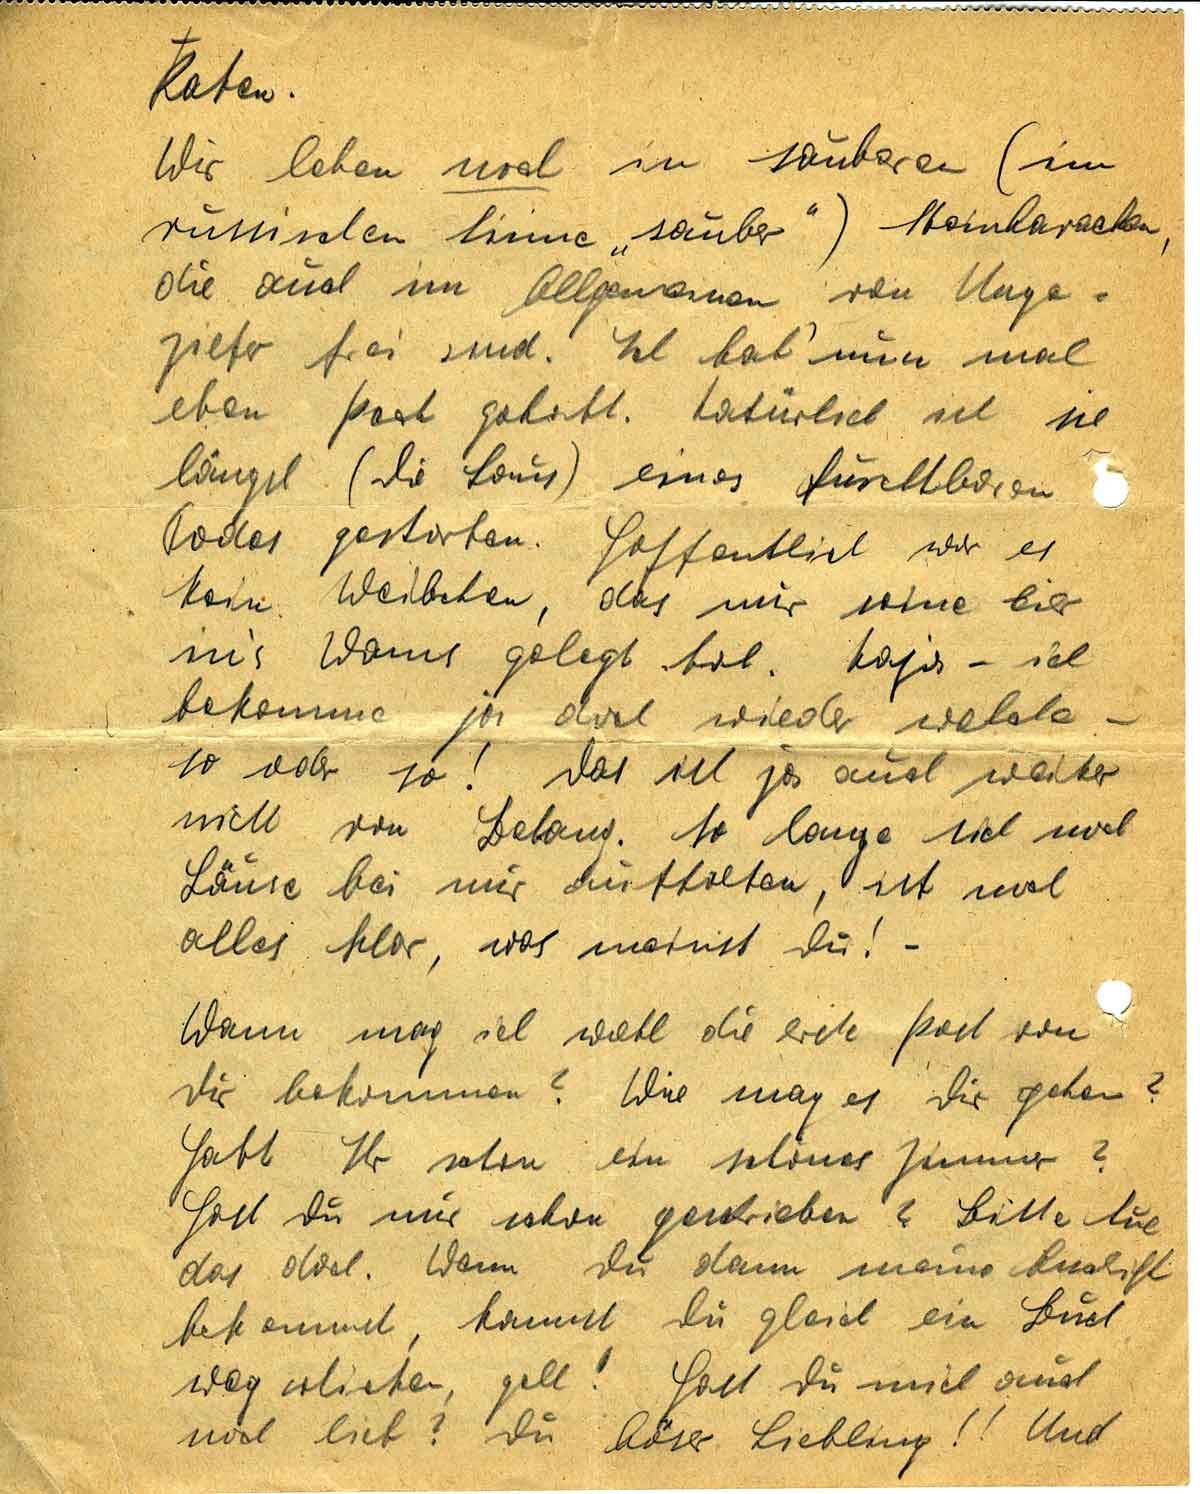 Raten.
Wir leben noch in sauberen (im
russischen Sinne „sauber") Steinbaracken,
die auch im Allgemeinen von Unge-
ziefer frei sind. Ich hab' nun mal
eben Pech gehabt. Natürlich ist sie
längst (die Laus) eines furchtbaren
Todes gestorben. Hoffentlich war es
kein Weibchen, das mir seine Eier
in's Wams gelegt hat. Naja – ich
bekomme ja doch wieder welche –
so oder so! Das ist ja auch weiter
nicht von Belang. So lange sich noch
Läuse bei mir aufhalten, ist noch
alles klar, was meinst Du! –
Wann mag ich wohl die erste Post von
Dir bekommen? Wie mag es Dir gehen?
Habt Ihr schon ein schönes Zimmer?
Hast Du mir schon geschrieben? Bitte tue
das doch. Wenn Du dann meine Anschrift
bekommst, kannst Du gleich ein Buch
wegschicken, gell! Hast Du mich auch
noch lieb? Du böser Liebling!! Und